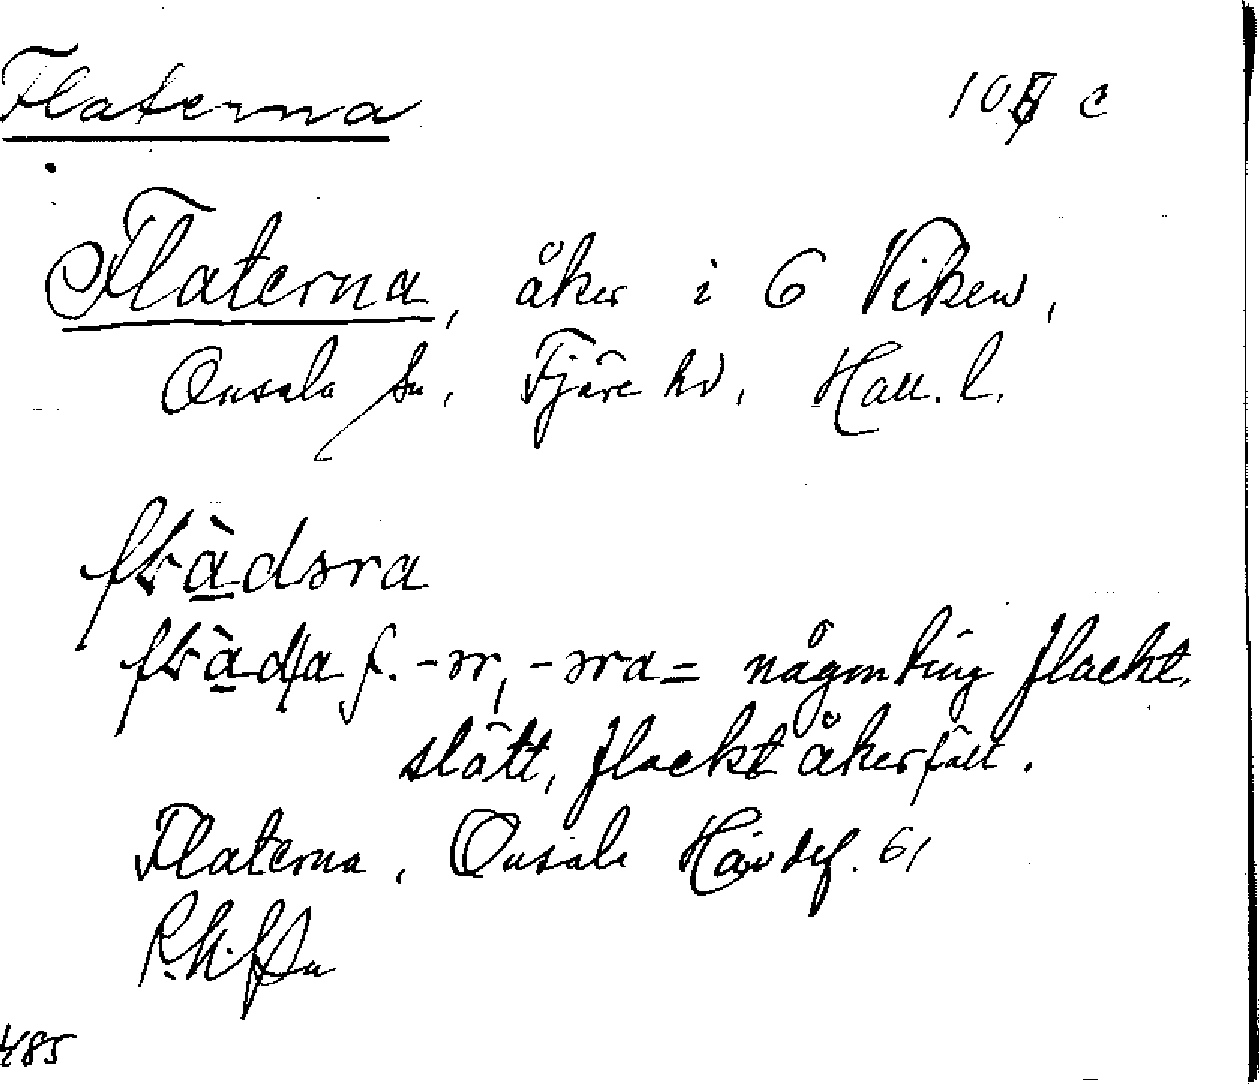 Flaterna 10 c
Flaterna, åker i 6 Viken,
Onsala sn, Fjäre hd, Hall. l.
flàdəra
flàda f. -ər, -əra = någonting flackt,
slätt, flackt åkerfält.
Flaterna, Onsala Hävdef. 61
485